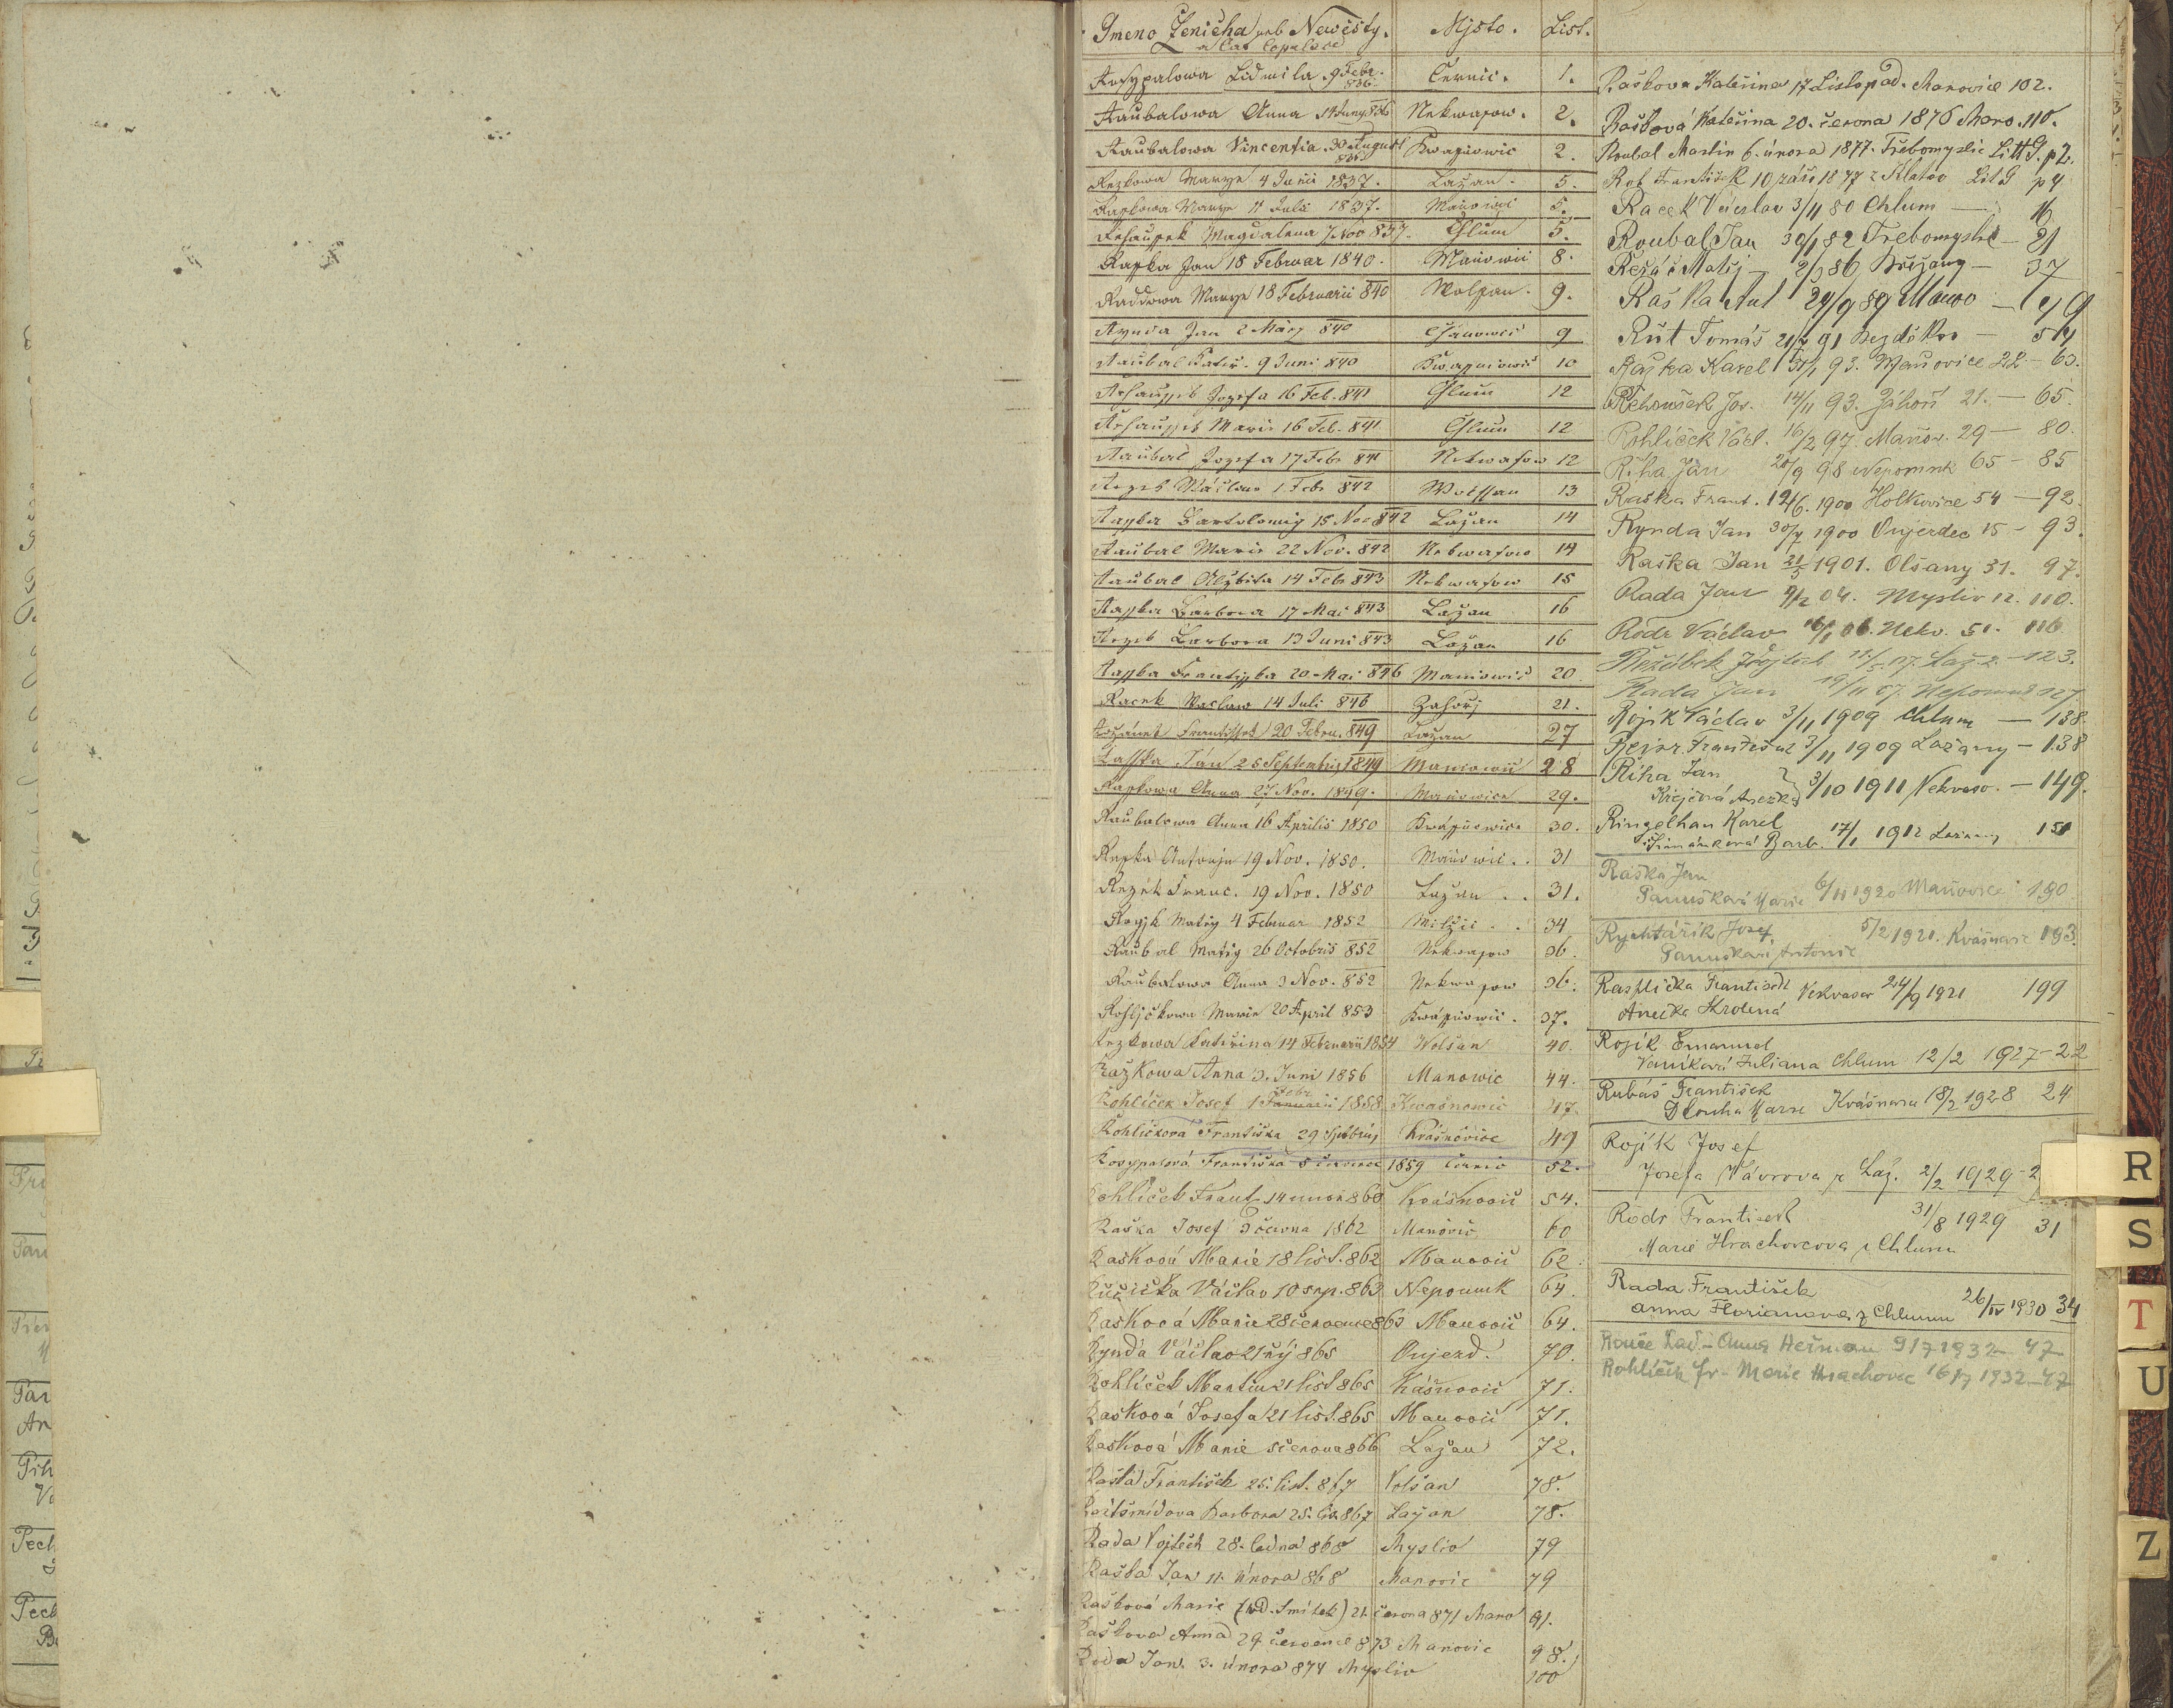 Gmeno Ženicha neb Newěsty. Mjsto. List.
a čas Copulace
Ludmila 9 Febr. 836 Černic. 1.
Raubalowa Anna 14 Juny 836 Nekwasow. 2.
Raubalowa Vincentia 30 August Kwasniowic 2.
Rezkowa Marye 4 Julii 1837. Lažan. 5.
Raskowa Marye 11 Julii 1837. Maniowic 5.
Magdalena 7 Nov 837. Chlum 5.
Raska Jan 18 Februar 1840. Maniowic 8.
Raddowa Marye 18 Februarii 840 Wolssan. 9.
Rynda Jan 2 März 840 9
Raubal 9 Juni 840 Kwasniowic 10
Řehaussek Jozefa 16 Feb. 841 Chlum 12
Řehaussek Marie 16 Feb. 841 Chlum 12
Raubal Jozefa 17 Febr 841 Nekwasow 12
Rezek Wáclaw 1 Febr 842 Wolssan 13
Rasska Bartolomig 15 Nov 842 Lažan 14
Raubal Marie 22 Nov. 842 Nekwasow 14
Raubal Alžbieta 14 Febr 843 Nekwasow 15
Rasska Barbora 17 Mai 843 Lažan 16
Rezek Barbora 13 Juni 843 Lažan 16
Rasska Frantisska 20 Mai 846 Maniowic 20
Racek Waclaw 14 Juli 846 Zahořj 21.
Frantissek 20 Febru. 849 Lažan 27
Rasska Ján 25 Septembris 1849 Maniowic 28
Raskowa Anna 27 Nov. 1849. Maniowice 29.
Raubalowa Anna 16 Aprilis 1850 Kwássniowice 30.
Raska Antonin 19 Nov. 1850. Maniowic. 31
Rezek Franc. 19 Nov. 1850 Lažan 31.
Matěg 4 Februar 1852 34
Raubal Matěg 26 Octobris 852 Nekwasow 36.
Raubalowa Anna 3 Nov. 852 Nekwasow 36.
Rohljčkowa Marie 20 April 853 Kwássniowic. 37.
Rezkowa Kateřina 14 Februarii 1854 Wolšan 40.
Ražkowa Anna 3. Juni 1856 Manowic 44.
Rohlíček Josef 1 Febr 1858 Kwašnowic 47.
Rohličková Františka 29 Kvašňovice 49
Rosypalová Františka 8 července 1859 Černic 52.
Rohlíček Frant. 14 unor 860 Kvášňovic 54.
Raška Josef 3 června 1862 Manovic 60
Rašková Marie 18 list. 862 Manovic 62
Růžička Václav 10 srp. 863 Nepomuk 64.
Rašková Marie 28 července 863 Manovic 64.
Rynda Václav 21 říj 865 Oujezd. 70.
Rohlíček Martin 21 list 865 Kvášňovic 71.
Rašková Josefa 21 list. 865 Manovic 71.
Rašková Marie 5 června 866 Lažan 72.
Raška František 25. list. 867 Volšan 78.
Barbora 25. lis. 867 Lažan 78.
Rada Vojtěch 28. ledna 868 Mysliv 79
Raška Jan 11. února 868 Manovic 79
Rašková Marie (vd. Smítek) 21. června 871 Mano 91.
Rašková Anna 29 července 873 Manovic 98.
Rada Jan. 3. února 874 Mysliv 100
Rašková Kateřina 17 Listopad. Manovice 102.
Rašková Kateřina 20. června 1876 Mano. 110.
Roubal Martin 6. února 1877. Třebomyslic Litt G. p 2.
František 10 září 1877 z Klatov Lit G p 4
Racek Václav 3/11 80 Chlum — 16
Roubal Jan 30/1 82 Třebomyslic — 21
Řežáč Matěj — 2/ 86 Břežany — 37
Raška Ant 24/9 89 Manov — 49
Růt Tomáš 21/2 91 Bezděkov — 54
Raška Karel 31/1 93. Maňovice 22 — 63.
Řehoušek Jos. 14/11 93. Záhoří 21. — 65.
Rohlíček Václ. 16/2 97. Maňov. 29 — 80.
Říha Jan 20/9 98 Nepomuk 65 — 85
Raška Frant. 12/6. 1900 Holkovice 54 — 92
Rynda Jan 30/7 1900 Oujezdec 15 — 93.
Raška Jan 21/5 1901. Olšany 31. 97.
Rada Jan 9/2 04. Mysliv 12. 110.
Rödr Václav 16/1 06. Nekv. 51. 116
Řežábek Vojtěch 07. Laž 2. — 123.
Rada Jan 19/11 07. Nepomuk 127
Rojík Václav 3/11 1909 Chlum — 138.
František 3/11 1909 Lažany — 138
Říha Jan
Krejčová Anežka 3/10 1911 Nekvaso. — 149.
Ringelhan Karel
Barb. 17/1 1912 Lažany 151
Raška Jan
Panušková Marie 6/11 1920 Maňovice 190
Rychtářík Josef 5/2 1921. Kvášňovic 193.
Panušková Antonie
Rasplička František Nekvasov 24/9 1921 199
Anežka Krotená
Rojík Emanuel
Vaníková Juliana Chlum 12/2 1927 — 22
Rubáš František
Dlouhá Marie Kvášňov 18/2 1928 24
Rojík Josef
Josefa Vávrova z Laž. 2/2 1929 — 2
Rödr František 31/8 1929 31
Marie Hrachovcova z Chlumu
Rada František
Anna Florianova z Chlumu 26/IV 1930 34
Anna Heřman 9/7 1932 — 47
Rohlíček Fr — Marie Hrachovec 16/7 1932 — 47
R
S
T
U
Z